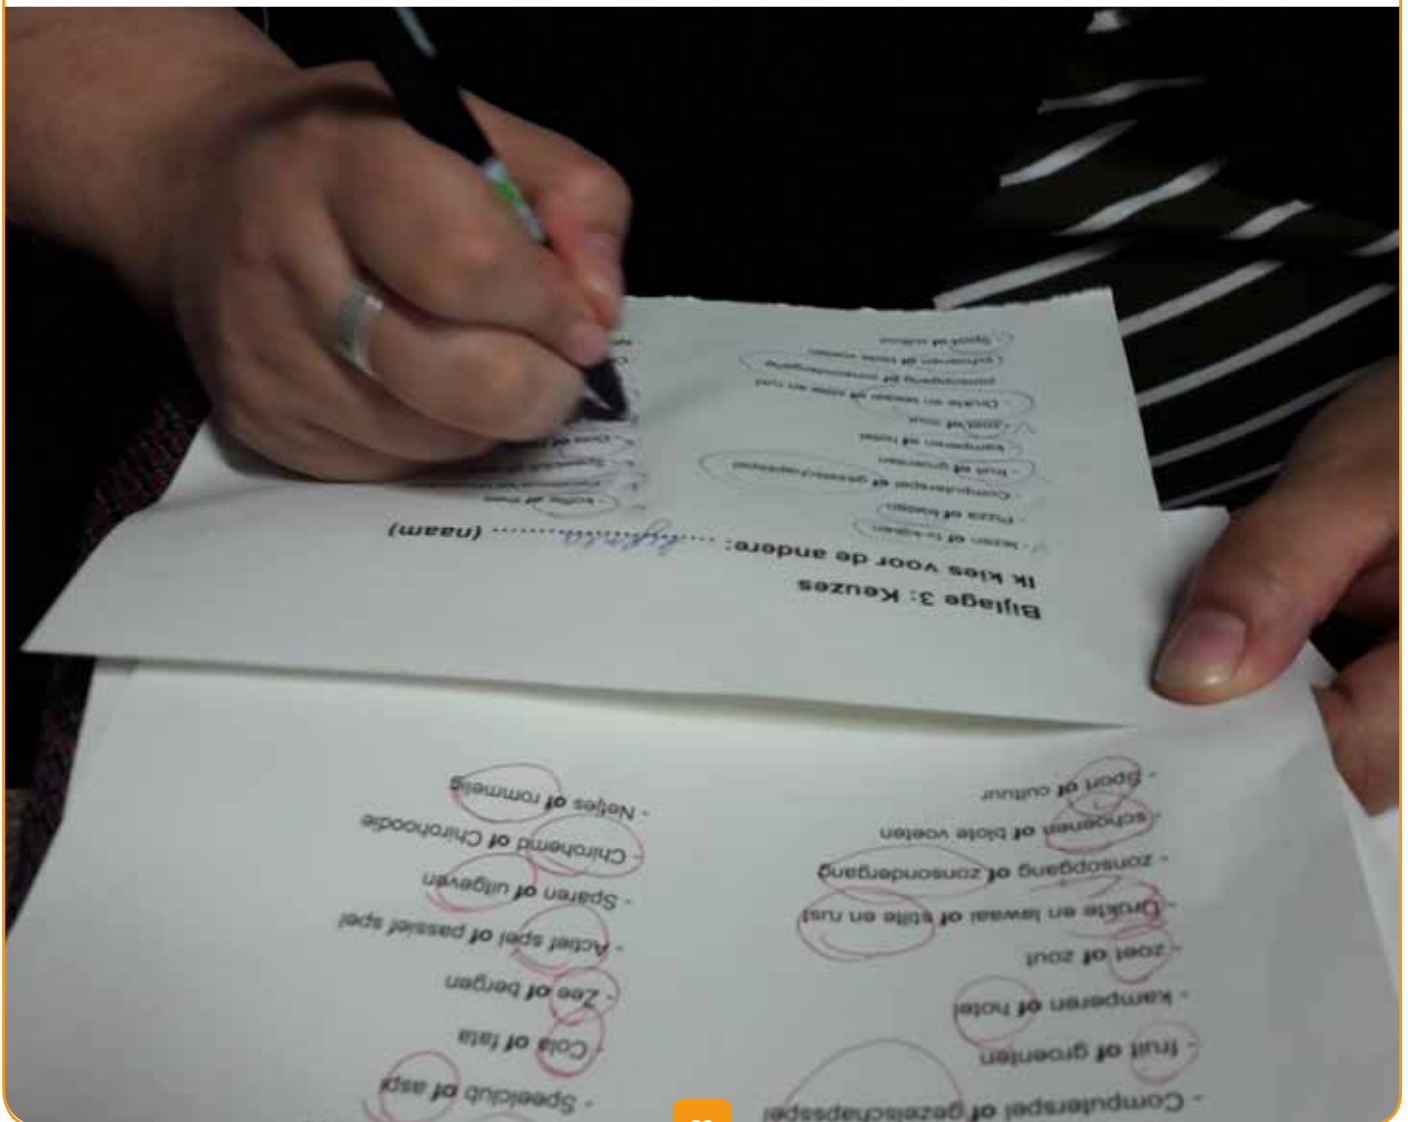 Bijlage 3: Keuzes
Ik kies voor de andere: (naam)
- lezen of tv-kijken
- Pizza of frieten
Computerspel of gezelschapsspel
- fruit of groenten
kamperen of hotel
- zoet of zout
Drukte en lawaai of stilte en rust
zonsopgang of zonsondergang
schoenen of blote voeten
Sport of cultuur
- koffie of thee
Cola of
- Computerspel of gezelschapsspel
- fruit of groenten
- kamperen of hotel
- zoet of zout
- Drukte en lawaai of stilte en rust
- zonsopgang of zonsondergang
- schoenen of blote voeten
- Sport of cultuur
- Speelclub of aspi
- Cola of fata
- Zee of bergen
- Actief spel of passief spel
- Sparen of uitgeven
- Chirohemd of Chirohoodie
- Netjes of rommelig